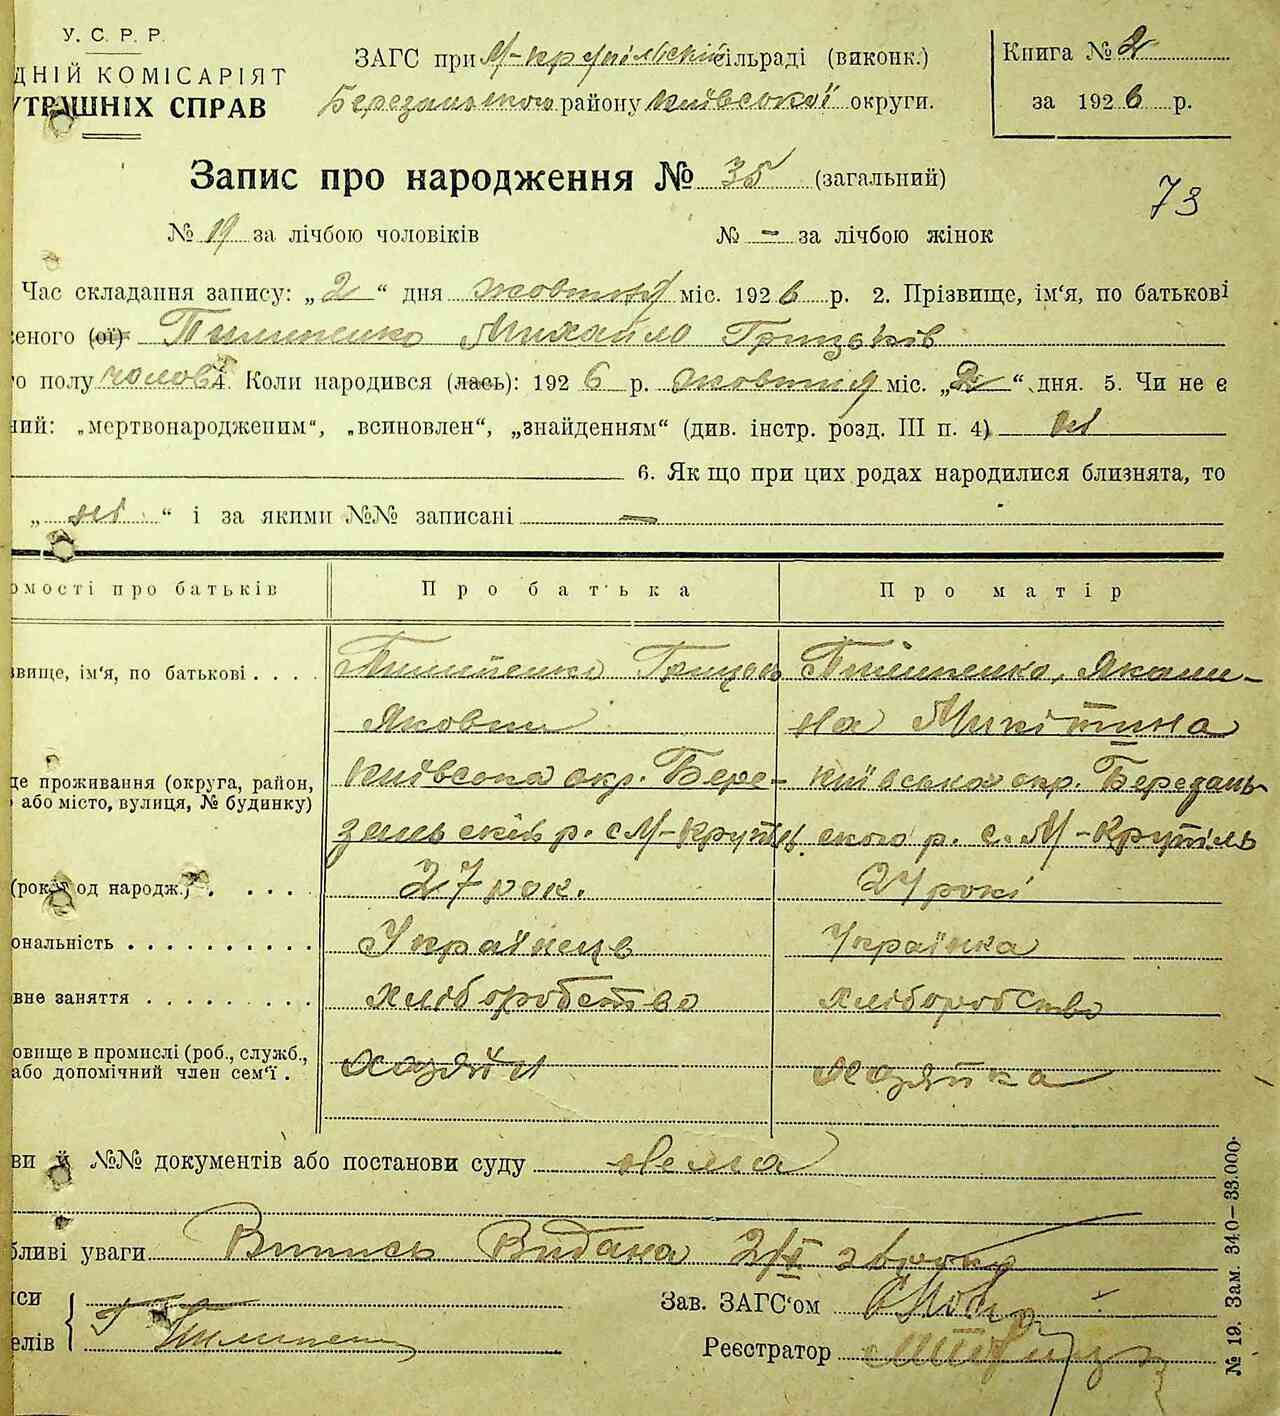 У. С. Р. Р.
ДНІЙ КОМІСАРІЯТ
УТРАШНІХ СПРАВ
ЗАГС при М-крупільській сільраді (виконк.)
Березанського району Київської округи.
Книга № 2
за 1926 р.
Запис про народження № 35 (загальний)
73
№ 19 за лічбою чоловіків № - за лічбою жінок
Час складання запису: „2“ дня жовтня міс. 1926 р. 2. Прізвище, ім'я, по батькові
еного (ої) Пилипенко Михайло Грицьків
о полу чолов 4. Коли народився (лась): 1926 р. жовтня міс. „2“ дня. 5. Чи не є
ний: „мертвонародженим“, „всиновлен“, „знайденням“ (див. інстр. розд. III п. 4) ні
6. Як що при цих родах народилися близнята, то
„ ні “ і за якими №№ записані —
омості про батьків Про батька Про матір
звище, ім'я, по батькові . . . . Пилипенко Грицько Пилипенко, Якили-
Якович на Микітина
де проживання (округа, район, Київська окр. Бере- Київська окр. Березань-
або місто, вулиця, № будинку)
зань ськів р. с М-Крупіль ского р. с. М-Крупіль
(рок. од народж.) . . . . . 27 рок. 24 рокі
ональність . . . . . . . . . . Українець Українка
вне заняття . . . . . . . . . хліборобство хліборобство
овище в промислі (роб., служб.,
або допомічний член сем'ї . хазяїн хазяйка
ви й №№ документів або постанови суду нема
бливі уваги Випись Видана 2/X
си
елів Г Пилипен
Зав. ЗАГС'ом
Реєстратор
№ 19. Зам. 340—33.000.